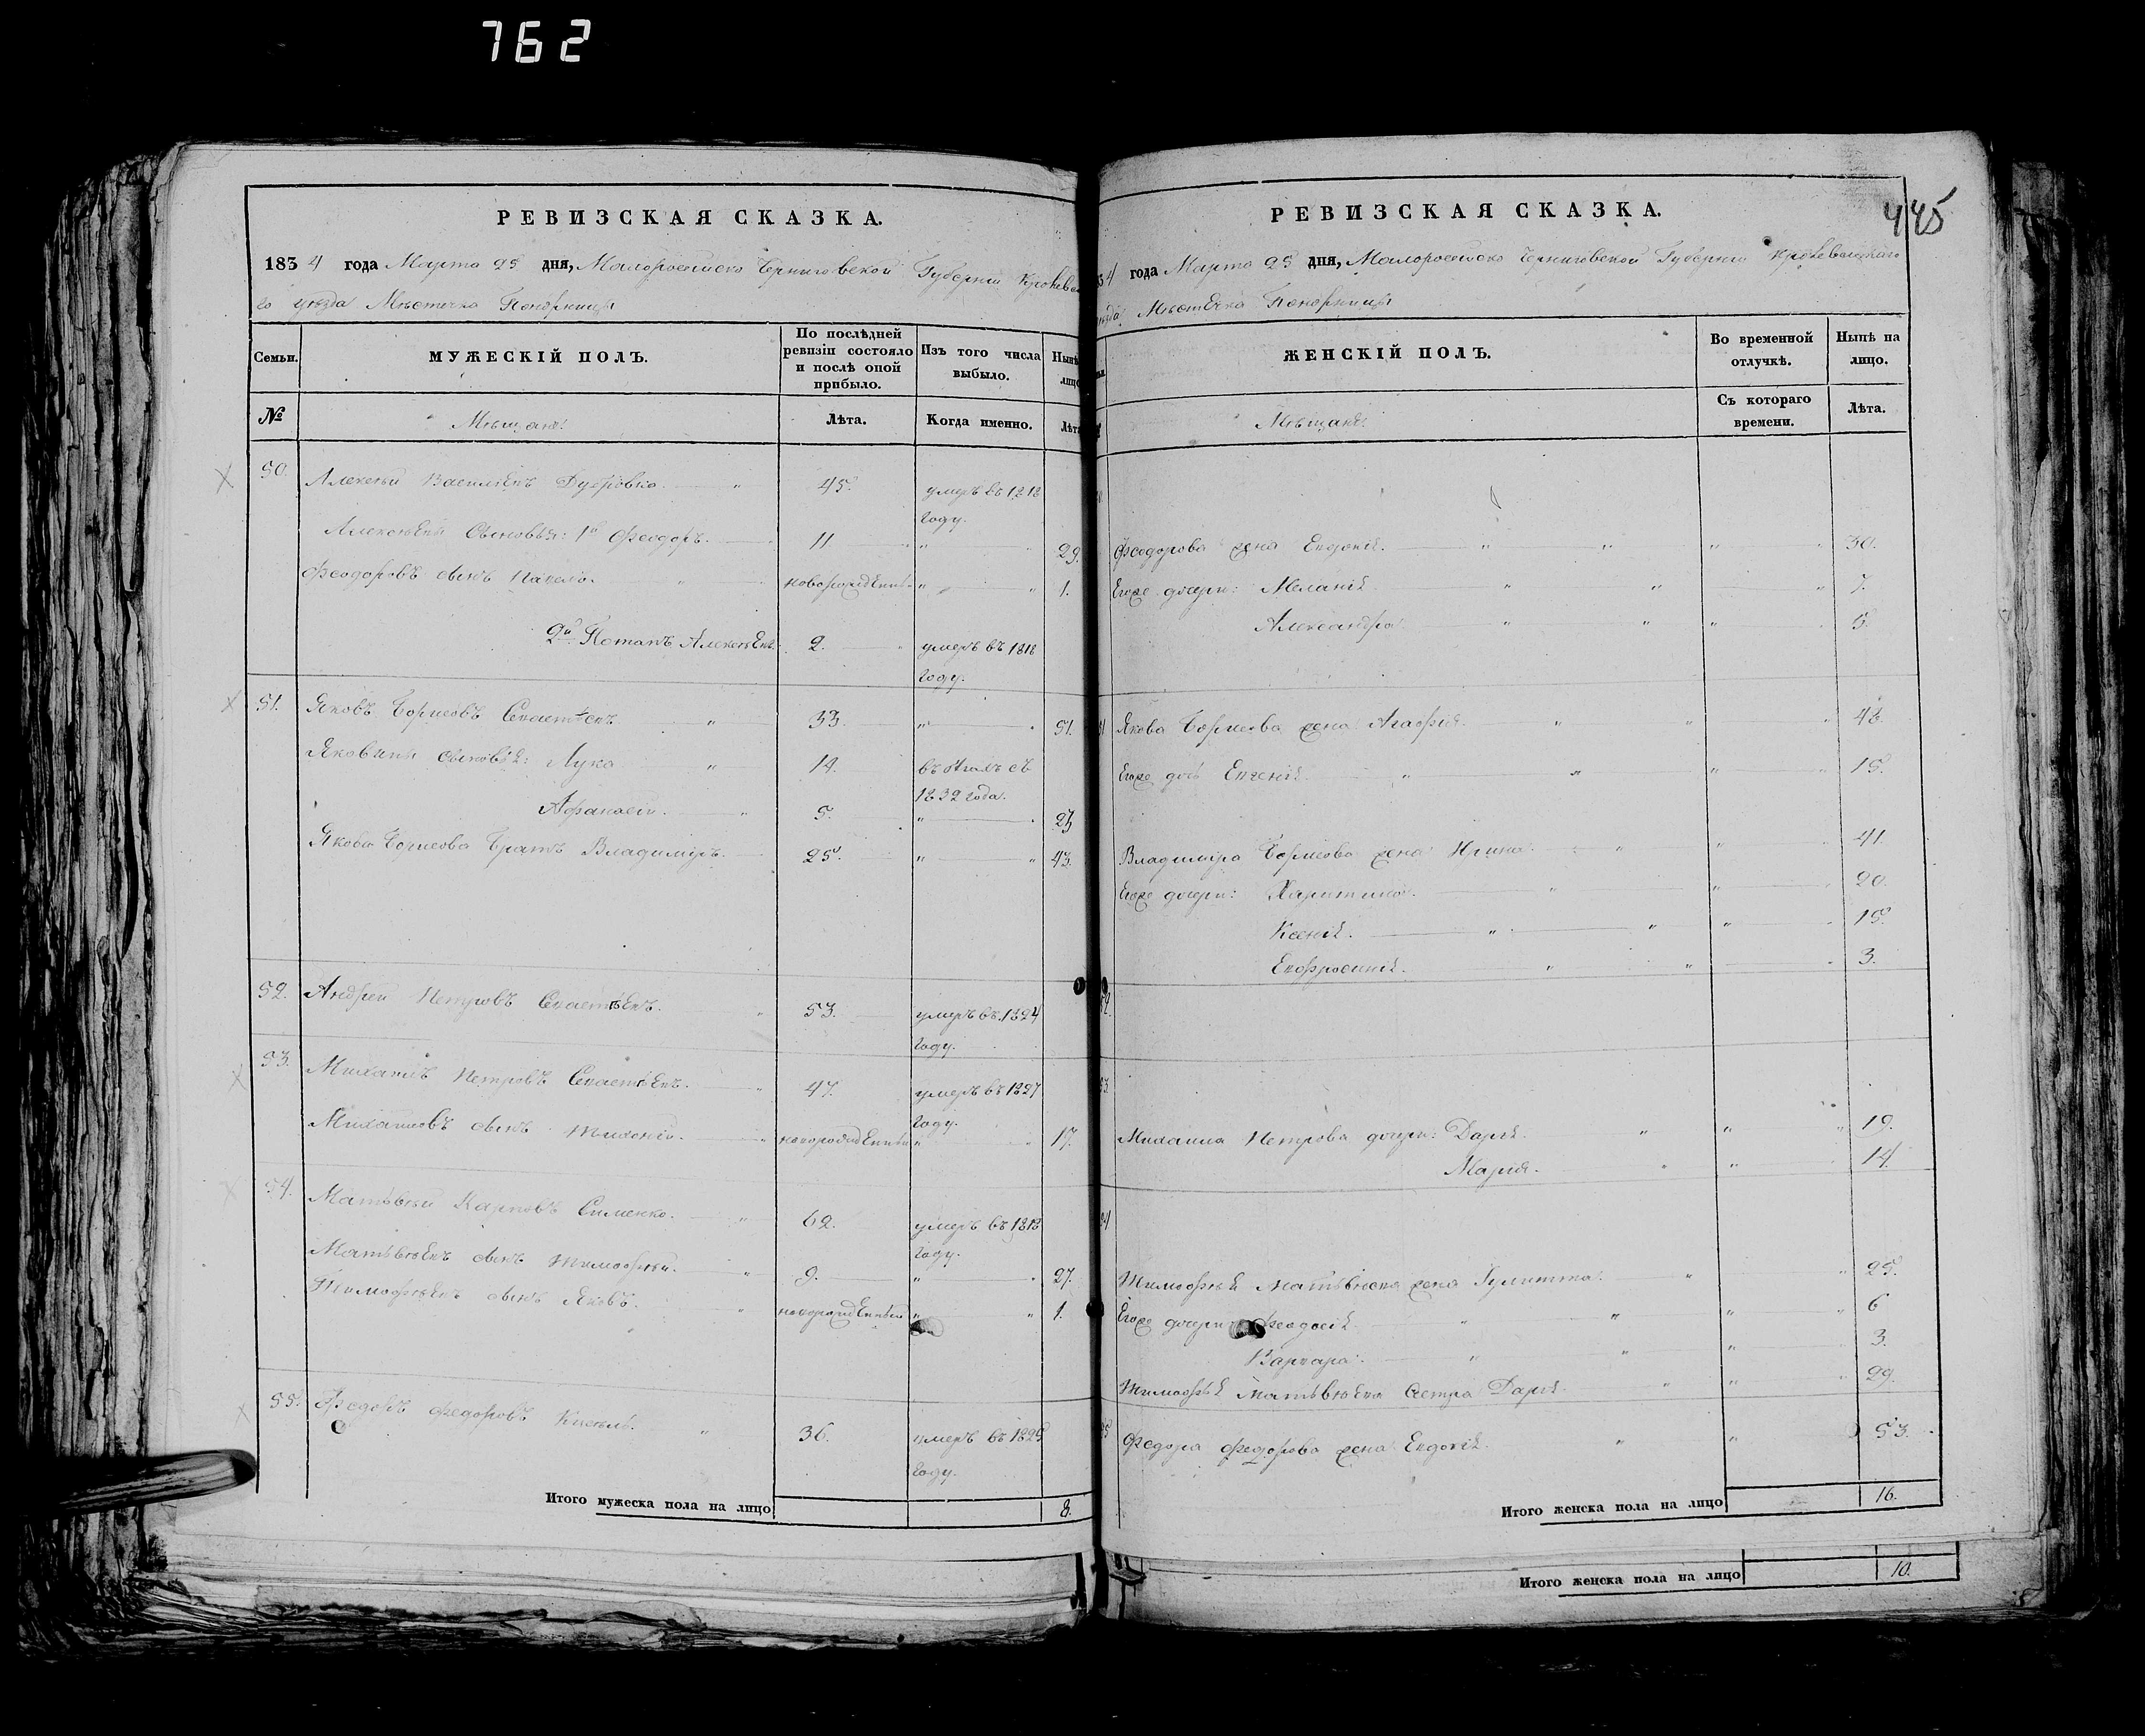 762
РЕВИЗСКАЯ СКАЗКА.
1834 года Марта 25 дня, Малороссійско Черниговской Губерніи Кролевец
го уезда Мѣстечка Понорницы
Семьи.
МУЖЕСКІЙ ПОЛЪ.
По послѣдней ревизіи состояло и послѣ оной прибыло.
Изъ того числа выбыло.
Нынѣ лицо
№
Мѣщане:
Лѣта.
Когда именно.
Лѣта
50. Алексей Васильевъ 45. умеръ въ 1818
году.
Алексѣевы сыновья: 1й Феодоръ. 11 " 29.
Феодоровъ сынъ Павелъ. новорожденный " 1.
2й Потапъ Алексѣевъ. 2. умеръ въ 1818
году.
51. Яковъ Борисовъ 33. " 51.
Яковлевы сыновья: Лука 14. съ
1832 года.
Афанасий. 5. " 23
Якова Борисова братъ Владимиръ. 25. " 43.
52. Андрей Петровъ 53. умеръ въ 1824
году.
53. Михаилъ Петровъ 47. умеръ въ 1827
году.
Михайловъ сынъ новорожденный " 17.
54. Матвѣй Карповъ Силенко. 62. умеръ въ 1818
году.
Матвѣевъ сынъ Тимофѣй. 9. " 27.
Тимофѣевъ сынъ Яковъ. новорожденный " 1.
55. Федоръ Федоровъ Кисель. 36. умеръ въ 1825
году.
Итого мужеска пола на лицо 8.
445
РЕВИЗСКАЯ СКАЗКА.
34 года Марта 25 дня, Малороссійско Черниговской Губерніи Кролевецкаго
уезда Мѣстечка Понорницы
ЖЕНСКІЙ ПОЛЪ.
Во временной отлучкѣ.
Нынѣ на лицо.
Мѣщане:
Съ котораго времени.
Лѣта.
Феодорова жена Евдокія. " 30.
Егоже дочери: Меланія " 7.
Александра " 5.
51 Якова Борисова жена Агафія. " 48
Егоже дочь Евгенія " 15.
Владимира Борисова жена Ирина. " 41.
Егоже дочери: Харитина. " 20.
Ксенія. " 15.
Ефросинія. " 3.
52.
53.
Михаила Петрова дочери: Дарья. " 19.
Марія. " 14.
54
Тимофѣя Матвѣева жена Гулитта. " 25.
Егоже дочери Феодосія " 6
Варвара. " 3.
Тимофѣя Матвѣева сестра Дарья. " 29.
55 Федора Федорова жена Евдокія. " 53.
Итого женска пола на лицо 16.
Итого женска пола на лицо 10.